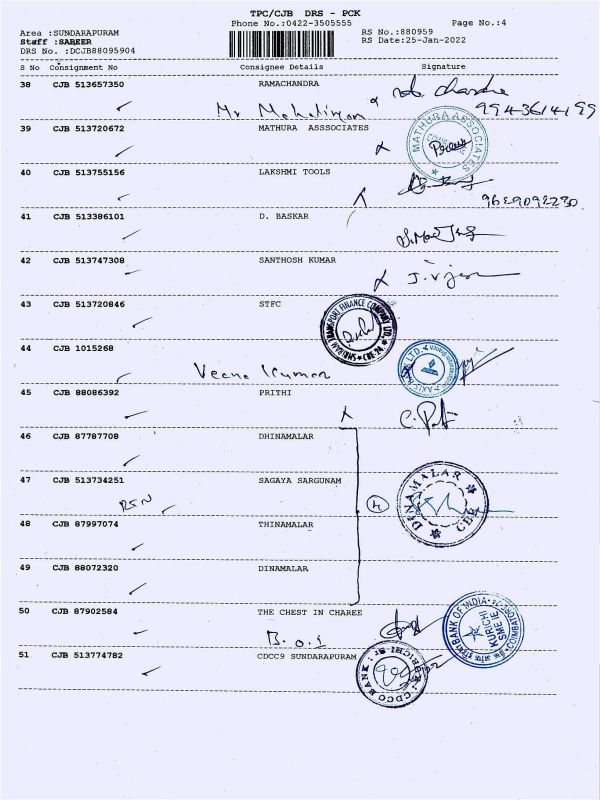 TPC/CJB DRS - PCK
Phone No.:0422-3505555
Page No.:4
Area :SUNDARAPURAM
RS No.:880959
Staff :SABEER
RS Date:25-Jan-2022
DRS No. :DCJB88095904
S No Consignment No Consignee Details Signature
38 CJB 513657350 RAMACHANDRA
9943614199
39 CJB 513720672 MATHURA ASSSOCIATES
MATHURA ASSOCIATES
40 CJB 513755156 LAKSHMI TOOLS
9629092230
41 CJB 513386101 D. BASKAR
42 CJB 513747308 SANTHOSH KUMAR
43 CJB 513720846 STFC
SHRIRAM TRANSPORT FINANCE COMPANY LTD. CBE-24
44 CJB 1015268
Veena Kumar
AXIS BANK LTD
45 CJB 88086392 PRITHI
46 CJB 87787708 DHINAMALAR
47 CJB 513734251 SAGAYA SARGUNAM
DINAMALAR CBE
48 CJB 87997074 THINAMALAR
49 CJB 88072320 DINAMALAR
50 CJB 87902584 THE CHEST IN CHAREE
B.o.i
BANK OF INDIA KURICHI SME COIMBATORE
51 CJB 513774782 CDCC9 SUNDARAPURAM